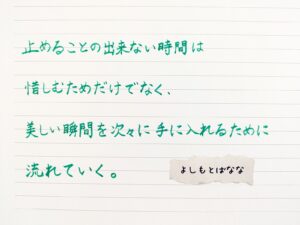 止めることの出来ない時間は
惜しむためだけでなく、
美しい瞬間を次々に手に入れるために
流れていく。
よしもとばなな